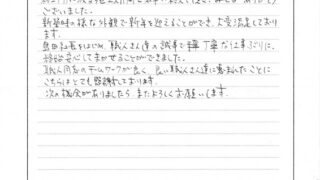 ございました。
新築時の様な外観で新年を迎えることができ、大変満足しております。
島田社長をはじめ、職人さん達の誠実で丁寧な仕事ぶりに、
終始安心してまかせることができました。
職人同志のチームワークが良く、良い職人さん達に恵まれたことに
こちらはとても感謝しております。
次の機会がありましたら またよろしくお願いします。